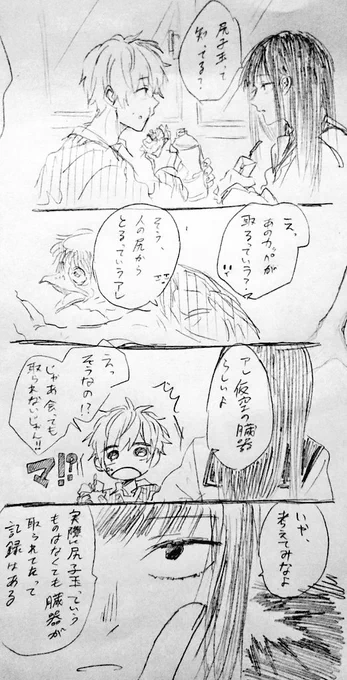 尻子玉って
知ってる?
え、
あのカッパが
取るっていう?
そう、
人の尻から
とるっていうアレ
アレ仮空の臓器
らしいよ
えっ
そうなの!?
じゃあ会っても
取られないじゃん!!
マ!?
いや、
考えてみなよ
実際に尻子玉っていう
ものはなくても臓器が
取られてたって
記録はある